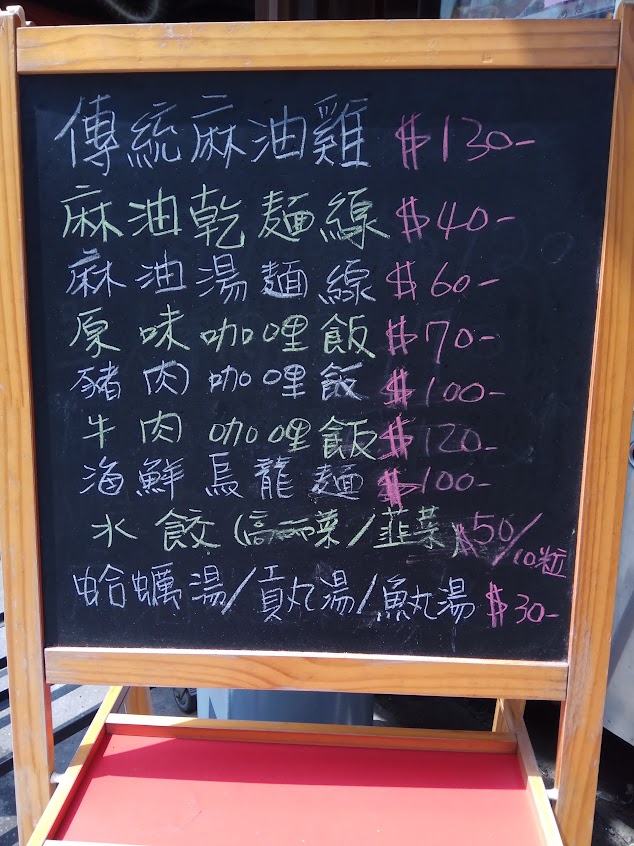 傳統麻油雞 $130-
麻油乾麵線 $40-
麻油湯麵線 $60-
原味咖哩飯 $70-
豬肉咖哩飯 $100-
牛肉咖哩飯 $120-
海鮮烏龍麵 $100-
水餃(高一菜/韮菜 $50/10粒
蛤蠣湯/貢丸湯/魚丸湯 $30-